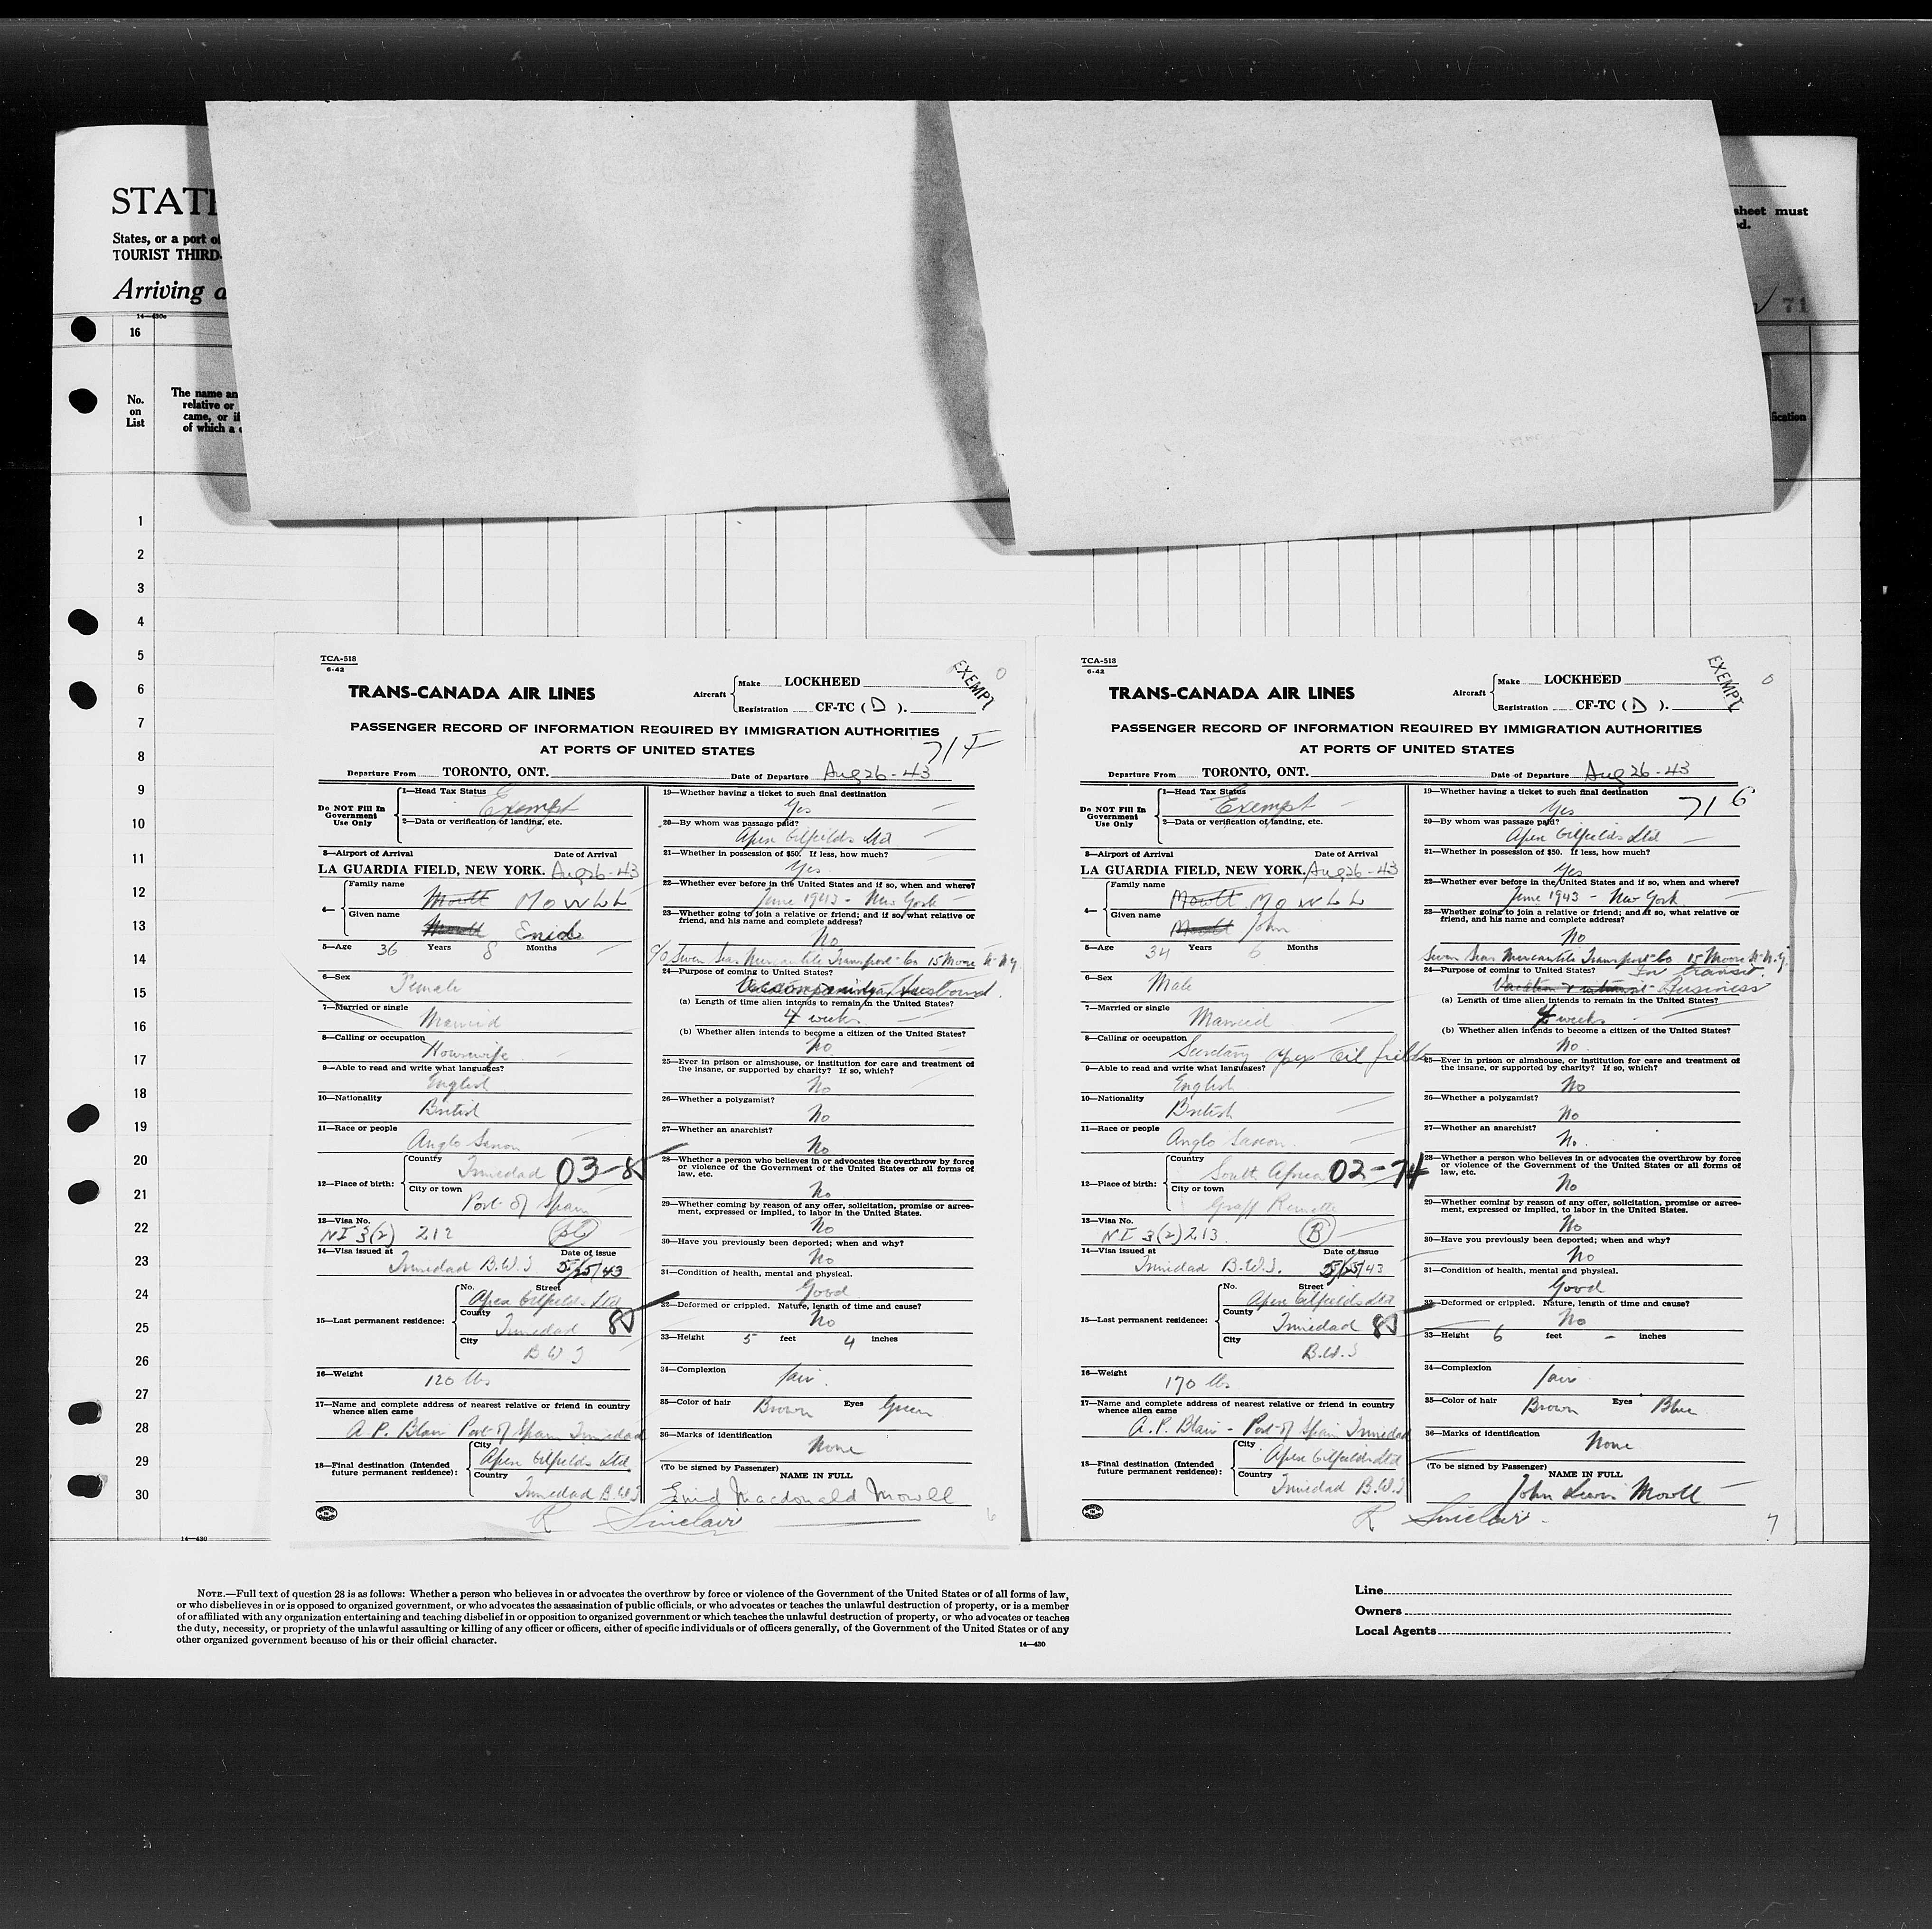 STATE
States, or a port of
TOURIST THIRD-
Arriving a
sheet must
ed.
71
14—430a
16
No.
on
List
The name an
relative or
came, or if
of which a c
fication
1
2
3
4
5
6
7
8
9
10
11
12
13
14
15
16
17
18
19
20
21
22
23
24
25
26
27
28
29
30
14—430
TCA-518
6-42
TRANS-CANADA AIR LINES
Aircraft
Make LOCKHEED
Registration CF-TC ( D ).
EXEMPT
0
PASSENGER RECORD OF INFORMATION REQUIRED BY IMMIGRATION AUTHORITIES
AT PORTS OF UNITED STATES
71 F
Departure From TORONTO, ONT. Date of Departure Aug 26 - 43
Do NOT Fill In
Government
Use Only
1—Head Tax Status
Exempt
2—Data or verification of landing, etc.
3—Airport of Arrival Date of Arrival
LA GUARDIA FIELD, NEW YORK. Aug 26 - 43
4—
Family name
Mowll MOWLL
Given name
Enid
5—Age 36 Years 8 Months
6—Sex
Female
7—Married or single
Married
8—Calling or occupation
Housewife
9—Able to read and write what languages?
English
10—Nationality
British
11—Race or people
Anglo Saxon
12—Place of birth:
Country
Trinidad 03-8
City or town
Port of Spain
13—Visa No.
NI 3(2) 212
14—Visa issued at Date of issue
Trinidad B.W.I 5/25/43
15—Last permanent residence:
No. Street
Apex Oilfields Ltd
County
Trinidad
City
B W I
16—Weight
120 lbs
17—Name and complete address of nearest relative or friend in country
whence alien came
A. P. Blair Port of Spain Trinidad
18—Final destination (Intended
future permanent residence):
City
Apex Oilfields Ltd
Country
Trinidad B.W.I
19—Whether having a ticket to such final destination
Yes
20—By whom was passage paid?
Apex Oilfields Ltd
21—Whether in possession of $50. If less, how much?
Yes
22—Whether ever before in the United States and if so, when and where?
June 1943 - New York
23—Whether going to join a relative or friend; and if so, what relative or
friend, and his name and complete address?
No
c/o Seven Seas Mercantile Transport Co 15 Moore St N.Y.
24—Purpose of coming to United States?
Accompanying Husband.
(a) Length of time alien intends to remain in the United States?
4 weeks
(b) Whether alien intends to become a citizen of the United States?
No
25—Ever in prison or almshouse, or institution for care and treatment of
the insane, or supported by charity? If so, which?
No
26—Whether a polygamist?
No
27—Whether an anarchist?
No
28—Whether a person who believes in or advocates the overthrow by force
or violence of the Government of the United States or all forms of
law, etc.
No
29—Whether coming by reason of any offer, solicitation, promise or agree-
ment, expressed or implied, to labor in the United States.
No
30—Have you previously been deported; when and why?
No
31—Condition of health, mental and physical.
Good
32—Deformed or crippled. Nature, length of time and cause?
No
33—Height 5 feet 4 inches
34—Complexion
fair.
35—Color of hair Brown Eyes Green
36—Marks of identification
None
(To be signed by Passenger) NAME IN FULL
Enid Macdonald Mowll
R Sinclair
6
TCA-518
6-42
TRANS-CANADA AIR LINES
Aircraft
Make LOCKHEED
Registration CF-TC ( D ).
EXEMPT
0
PASSENGER RECORD OF INFORMATION REQUIRED BY IMMIGRATION AUTHORITIES
AT PORTS OF UNITED STATES
Departure From TORONTO, ONT. Date of Departure Aug 26 - 43
Do NOT Fill In
Government
Use Only
1—Head Tax Status
Exempt
2—Data or verification of landing, etc.
3—Airport of Arrival Date of Arrival
LA GUARDIA FIELD, NEW YORK. Aug 26 - 43
4—
Family name
Mowll MOWLL
Given name
John
5—Age 34 Years 6 Months
6—Sex
Male
7—Married or single
Married
8—Calling or occupation
Secretary Apex Oil fields
9—Able to read and write what languages?
English
10—Nationality
British
11—Race or people
Anglo Saxon.
12—Place of birth:
Country
South Africa 02-74
City or town
Graff
13—Visa No.
NI 3(2) 213. B
14—Visa issued at Date of issue
Trinidad B.W.I. 5/25/43
15—Last permanent residence:
No. Street
Apex Oilfields Ltd
County
Trinidad
City
B.W.I
16—Weight
170 lbs
17—Name and complete address of nearest relative or friend in country
whence alien came
A. P. Blair - Port of Spain Trinidad
18—Final destination (Intended
future permanent residence):
City
Apex Oilfields Ltd
Country
Trinidad B.W.I
19—Whether having a ticket to such final destination
Yes 71 G
20—By whom was passage paid?
Apex Oilfields Ltd
21—Whether in possession of $50. If less, how much?
Yes
22—Whether ever before in the United States and if so, when and where?
June 1943 - New York
23—Whether going to join a relative or friend; and if so, what relative or
friend, and his name and complete address?
No
Seven Seas Mercantile Transport Co 15 Moore St N.Y.
24—Purpose of coming to United States? In transit.
business
(a) Length of time alien intends to remain in the United States?
4 weeks
(b) Whether alien intends to become a citizen of the United States?
No.
25—Ever in prison or almshouse, or institution for care and treatment of
the insane, or supported by charity? If so, which?
No
26—Whether a polygamist?
No
27—Whether an anarchist?
No.
28—Whether a person who believes in or advocates the overthrow by force
or violence of the Government of the United States or all forms of
law, etc.
No
29—Whether coming by reason of any offer, solicitation, promise or agree-
ment, expressed or implied, to labor in the United States.
No
30—Have you previously been deported; when and why?
No
31—Condition of health, mental and physical.
Good
32—Deformed or crippled. Nature, length of time and cause?
No
33—Height 6 feet - inches
34—Complexion
fair
35—Color of hair Brown Eyes Blue
36—Marks of identification
None
(To be signed by Passenger) NAME IN FULL
John Lewis Mowll
R Sinclair.
7
NOTE.—Full text of question 28 is as follows: Whether a person who believes in or advocates the overthrow by force or violence of the Government of the United States or of all forms of law,
or who disbelieves in or is opposed to organized government, or who advocates the assassination of public officials, or who advocates or teaches the unlawful destruction of property, or is a member
of or affiliated with any organization entertaining and teaching disbelief in or opposition to organized government or which teaches the unlawful destruction of property, or who advocates or teaches
the duty, necessity, or propriety of the unlawful assaulting or killing of any officer or officers, either of specific individuals or of officers generally, of the Government of the United States or of any
other organized government because of his or their official character.
14—430
Line
Owners
Local Agents